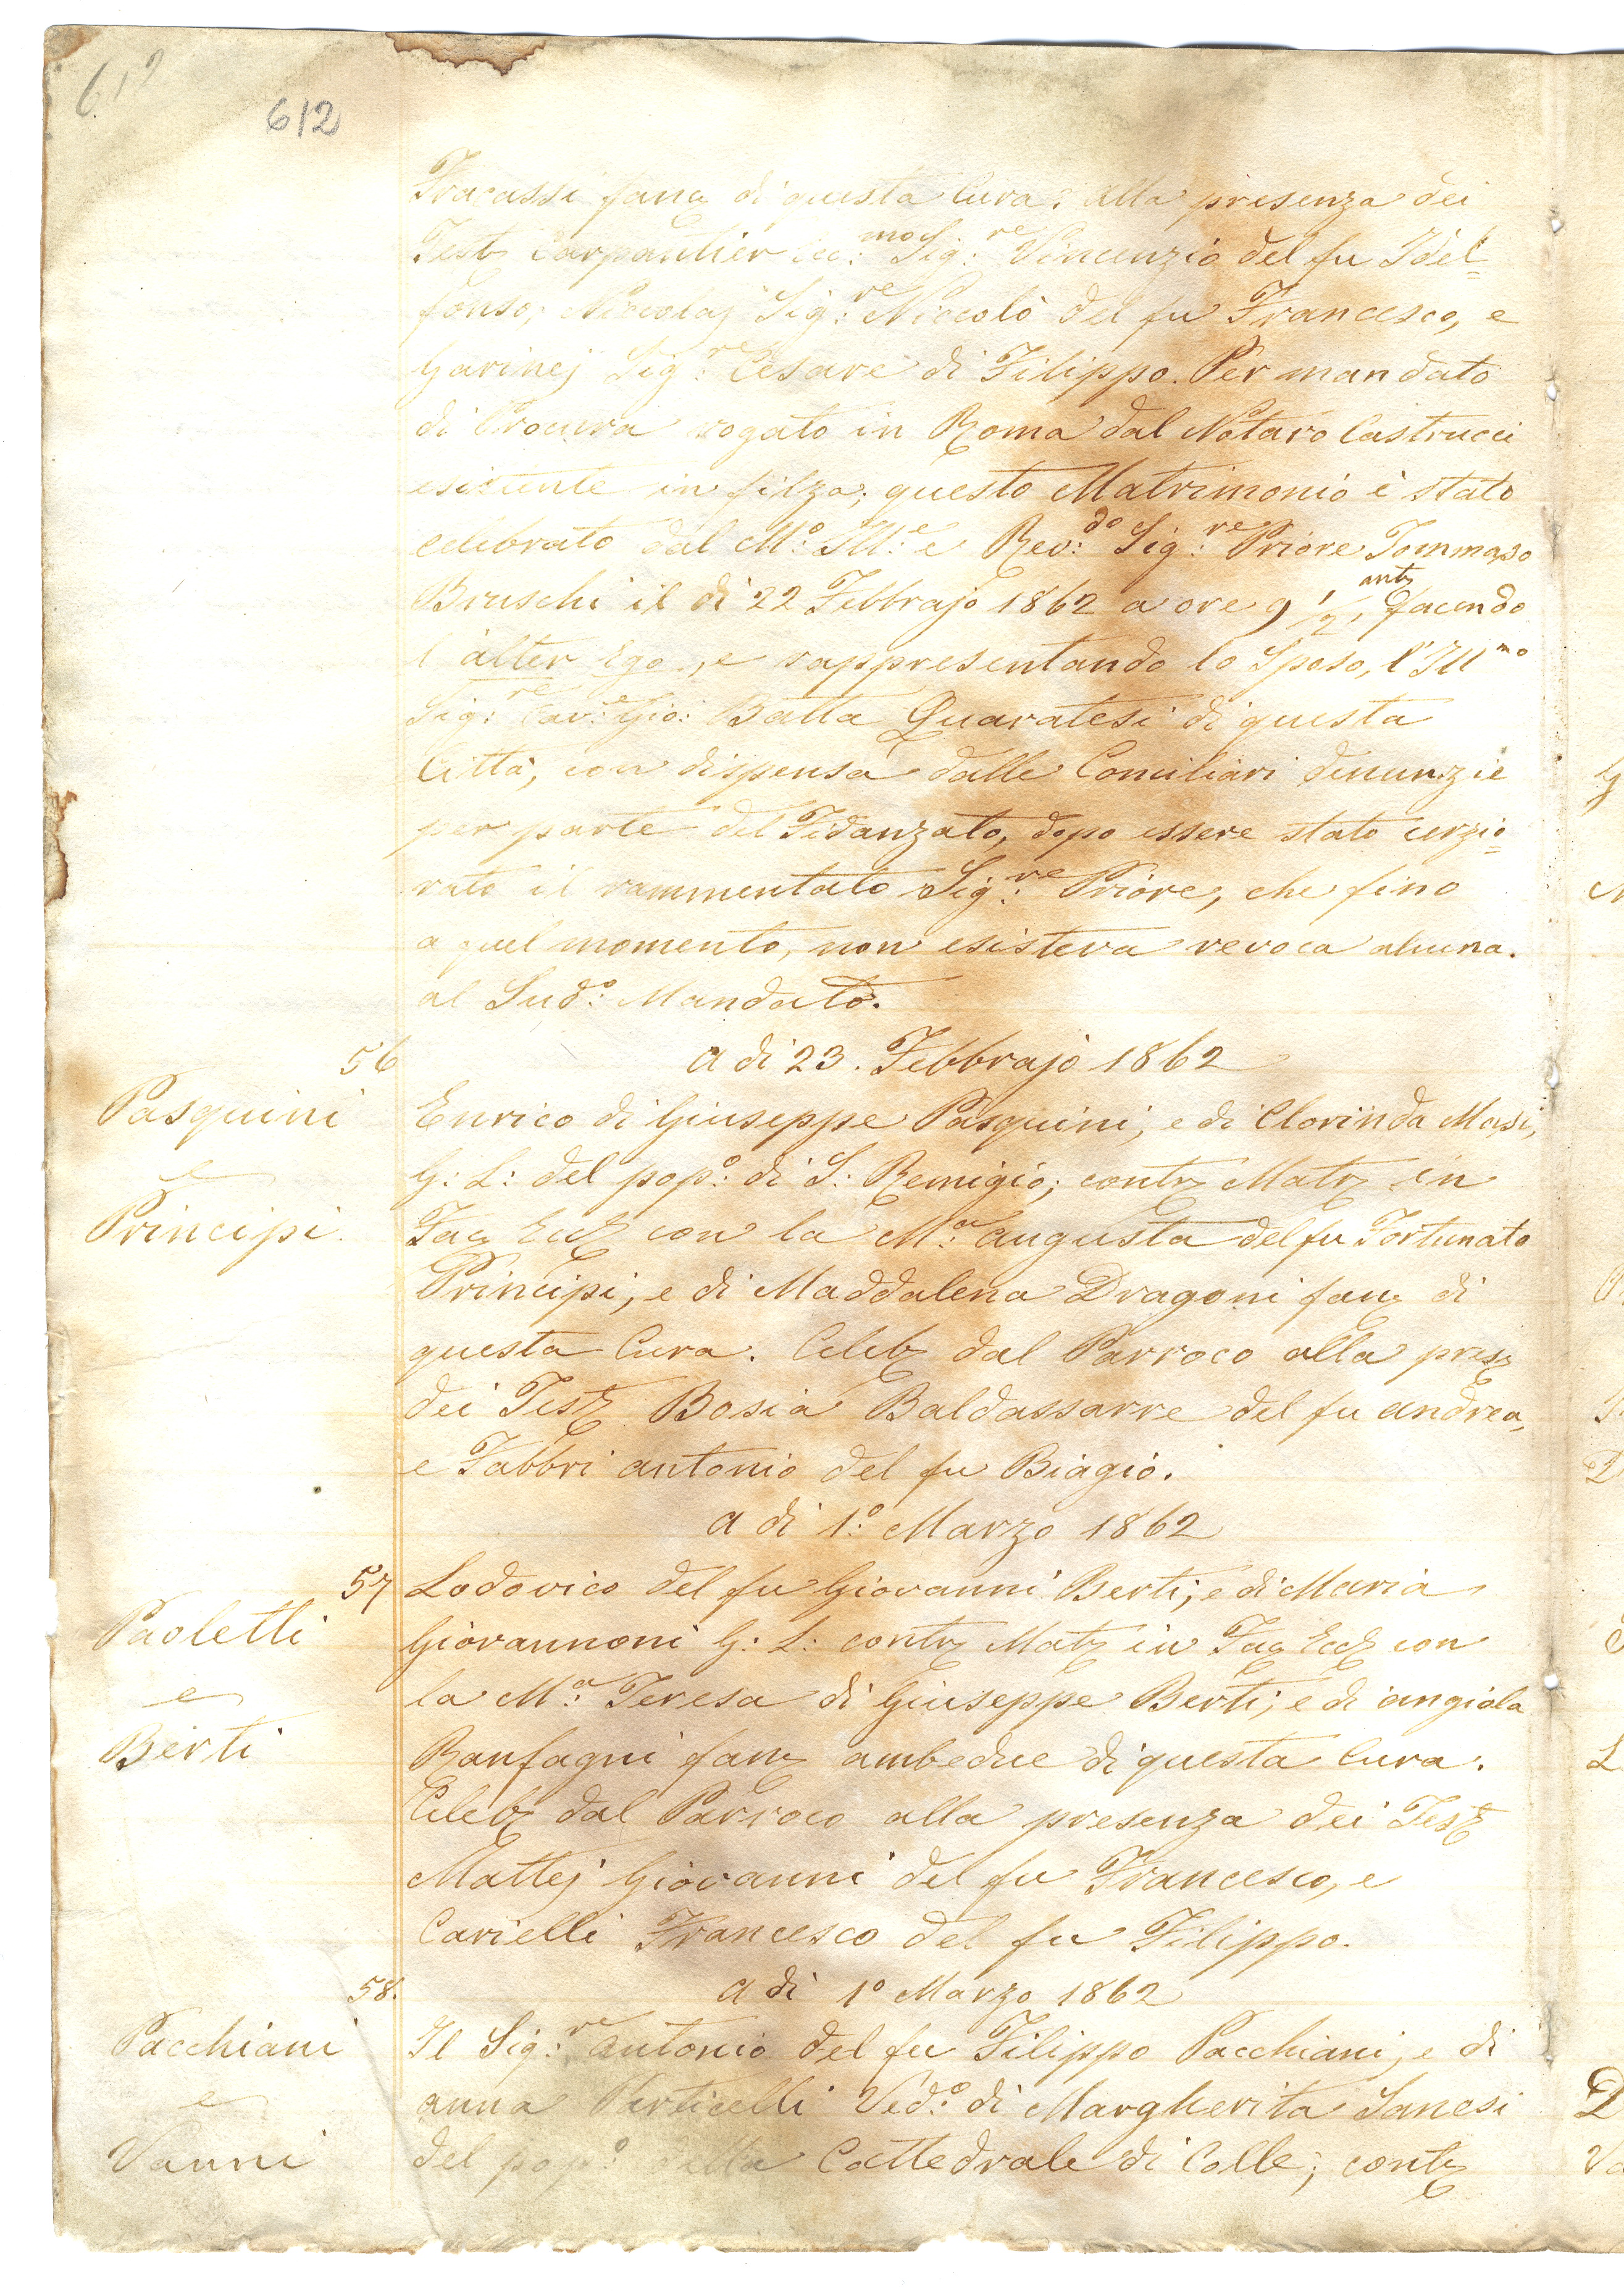 612
612
Fracassi fanc di questa Cura: alla presenza dei
Test Carpantiér Ecc:mo Sig:re Vincenzio del fu Idel=
fonso, Niccolaj Sig:re Niccolò del fu Francesco, e
Garinej Sig:re Cesare di Filippo. Per mandato
di Procura rogato in Roma dal Notaro Castrucci
esistente in filza; questo Matrimonio è stato
celebrato dal M:o Ill:e e Rev:do Sig:re Priore Tommaso
Bruschi il dì 22 Febbrajo 1862 a ore 9 1/2, ant facendo
l'alter Ego, e rappresentando lo Sposo, l'Ill mo
Sig:re Cav:e Gio: Batta Quaratesi di questa
Città, con dispensa dalle Conciliari denunzie
per parte del Fidanzato, dopo essere stato cerzio=
rato il rammentato Sig:re Priore, che fino
a quel momento, non esisteva revoca alcuna.
al Sud:o Mandato.
56
a dì 23. Febbrajo 1862
Pasquini
e
Principi.
Enrico di Giuseppe Pasquini, e di Clorinda Masi,
G: L: del pop:o di S: Remigio; contr Matr in
Fac Eccl con la M:a Augusta del fu Fortunato
Principi, e di Maddalena Dragoni fanc di
questa Cura. Celeb dal Parroco alla pres
dei Test Bosia Baldassarre del fu Andrea,
e Fabbri Antonio del fu Biagio.
a dì 1:o Marzo 1862
57
Paoletti
e
Berti
Lodovico del fu Giovanni Berti, e di Maria
Giovannoni G: L: contr Matr in Fac Eccl con
la M:a Teresa di Giuseppe Berti, e di Angiola
Ranfagni fanc ambedue di questa Cura.
Celeb dal Parroco alla presenza dei Test
Mattej Giovanni del fu Francesco, e
Carielli Francesco del fu Filippo.
58.
a dì 1o Marzo 1862
Pacchiani
e
Vanni
Il Sig:re Antonio del fu Filippo Pacchiani, e di
Anna Particelli Ved:o di Margherita Sanesi
del pop:o della Cattedrale di Colle; contr